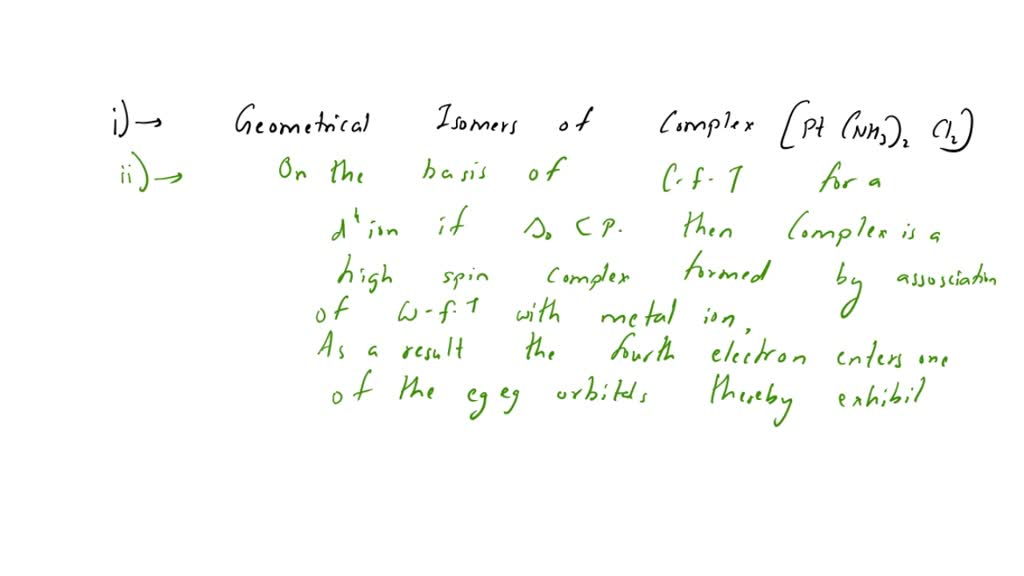 i)→ Geometrical Isomers of Complex [Pt (NH3)2 Cl2]
ii)→ On the basis of C.f.T for a
d4 ion if Δ0 < P. then Complex is a
high spin complex formed by assosciation
of W-f.T with metal ion,
As a result the fourth electron enters one
of the eg eg orbitds thereby exhibil